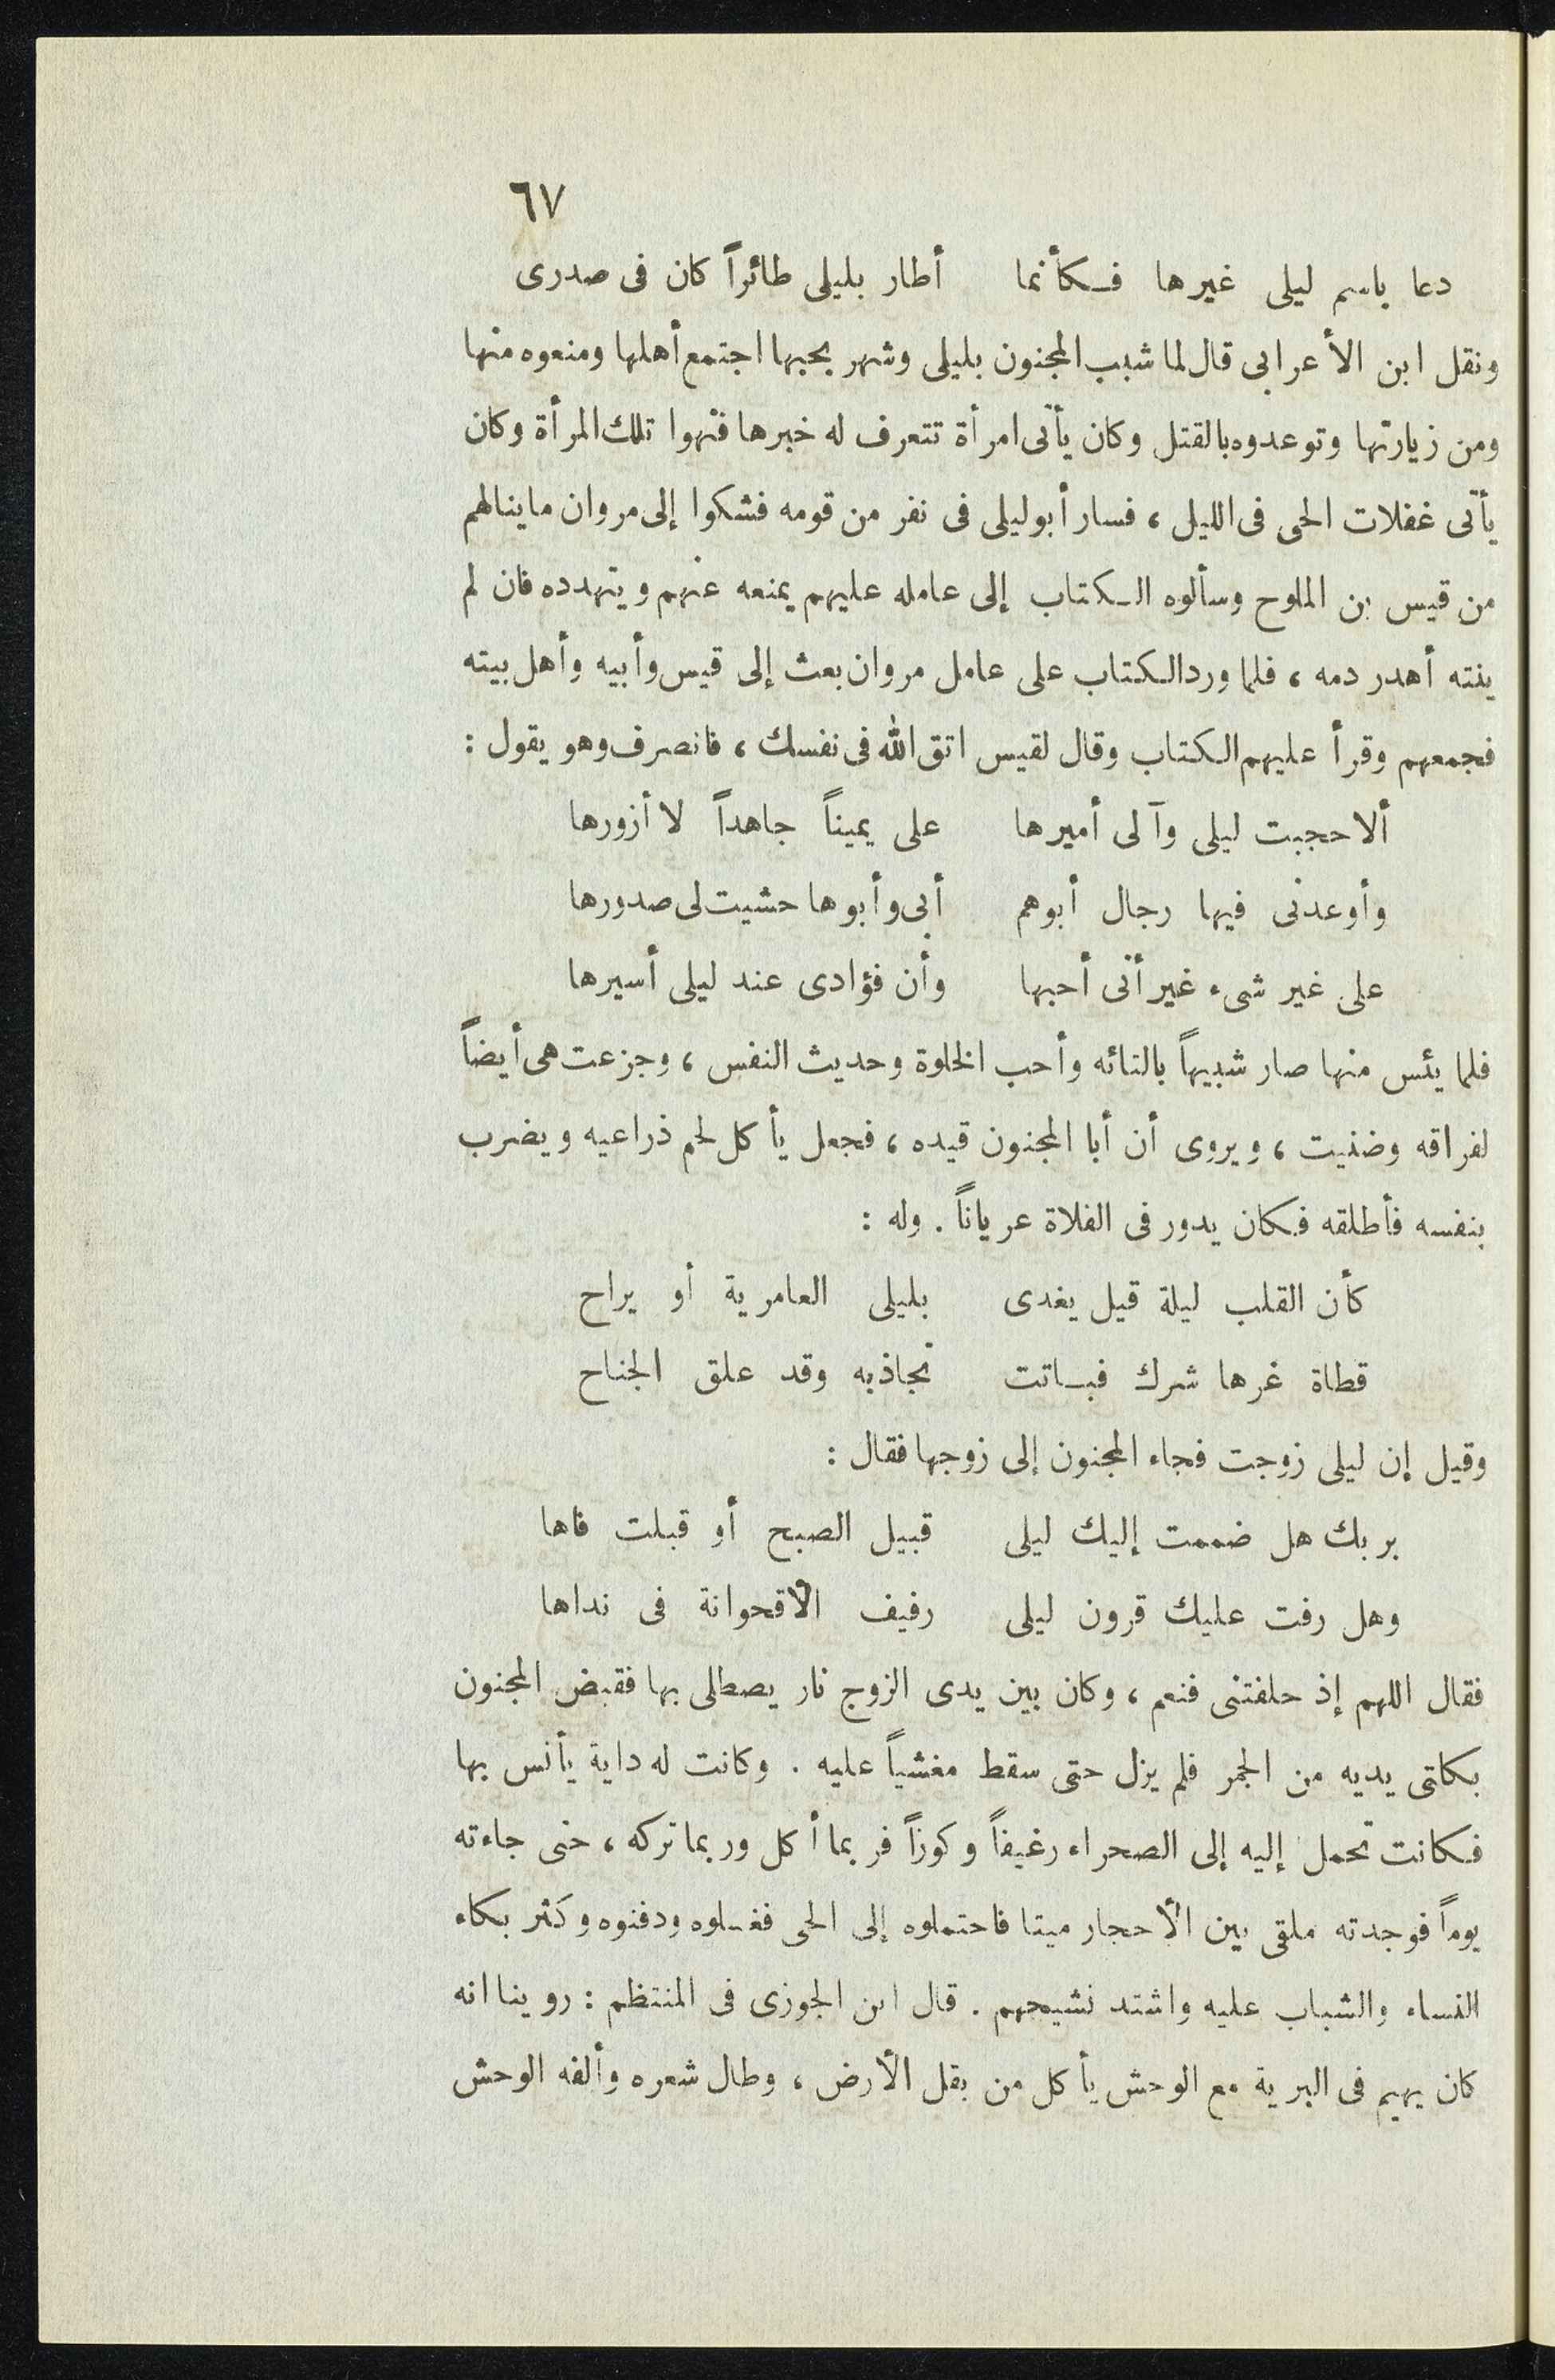 ٦٧
دعا باسم ليلى غيرها فكأنما أطار بليلى طائراً كان فى صدرى
ونقل ابن الأعرابى قال لما شبب المجنون بليلى وشهر بحبها اجتمع أهلها ومنعوه منها
ومن زيارتها وتوعدوه بالقتل وكان يأتى امرأة تتعرف له خبرها فنهوا تلك المرأة وكان
يأتى غفلات الحى فى الليل ، فسار أبو ليلى فى نفر من قومه فشكوا إلى مروان ما ينالهم
من قيس بن الملوح وسألوه الكتاب إلى عامله عليهم يمنعه عنهم ويتهدده فان لم
ينته أهدر دمه ، فلما ورد الكتاب على عامل مروان بعث إلى قيس وأبيه وأهل بيته
فجمعهم وقرأ عليهم الكتاب وقال لقيس اتق الله فى نفسك ، فانصرف وهو يقول :
ألا حجبت ليلى وآلى أميرها على يميناً جاهداً لا أزورها
وأوعدنى فيها رجال أبوهم أبى وأبوها حشيت لى صدورها
على غير شىء غير أنى أحبها وأن فؤادى عند ليلى أسيرها
فلما يئس منها صار شبيهاً بالتائه وأحب الخلوة وحديث النفس ، وجزعت هى أيضاً
لفراقه وضنيت ، ويروى أن أبا المجنون قيده ، فجعل يأكل لحم ذراعيه ويضرب
بنفسه فأطلقه فكان يدور فى الفلاة عرياناً . وله :
كأن القلب ليلة قيل يغدى بليلى العامرية أو يراح
قطاة غرها شرك فباتت تجاذبه وقد علق الجناح
وقيل إن ليلى زوجت فجاء المجنون إلى زوجها فقال :
بربك هل ضممت إليك ليلى قبيل الصبح أو قبلت فاها
وهل رفت عليك قرون ليلى رفيف الأقحوانة فى نداها
فقال اللهم إذ حلفتنى فنعم ، وكان بين يدى الزوج نار يصطلى بها فقبض المجنون
بكلتى يديه من الجمر فلم يزل حتى سقط مغشياً عليه . وكانت له داية يأنس بها
فكانت تحمل إليه إلى الصحراء رغيفاً وكوزاً فربما أكل وربما تركه ، حتى جاءته
يوماً فوجدته ملقى بين الأحجار ميتا فاحتملوه إلى الحى فغسلوه ودفنوه وكثر بكاء
النساء والشباب عليه واشتد نشيجهم . قال ابن الجوزى فى المنتظم : روينا انه
كان يهيم فى البرية مع الوحش يأكل من بقل الأرض ، وطال شعره وألفه الوحش